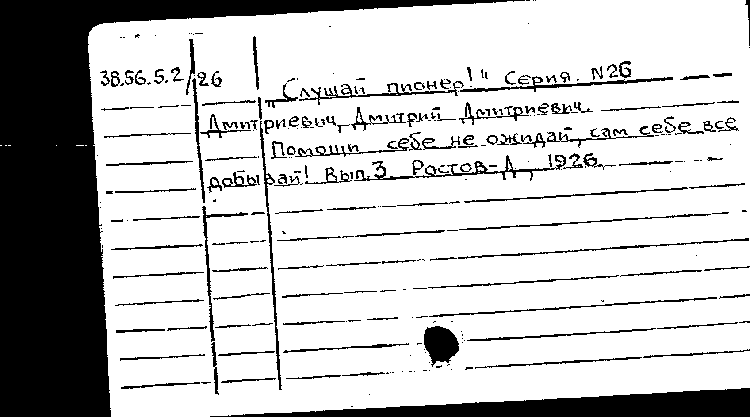 38.56.5.2/26 "Слушай пионер!" Серия. N26
Дмитриевич, Дмитрий Дмитриевич.
Помощи себе не ожидай, сам себе все
добывай! Вып.3. Ростов-Д, 1926.